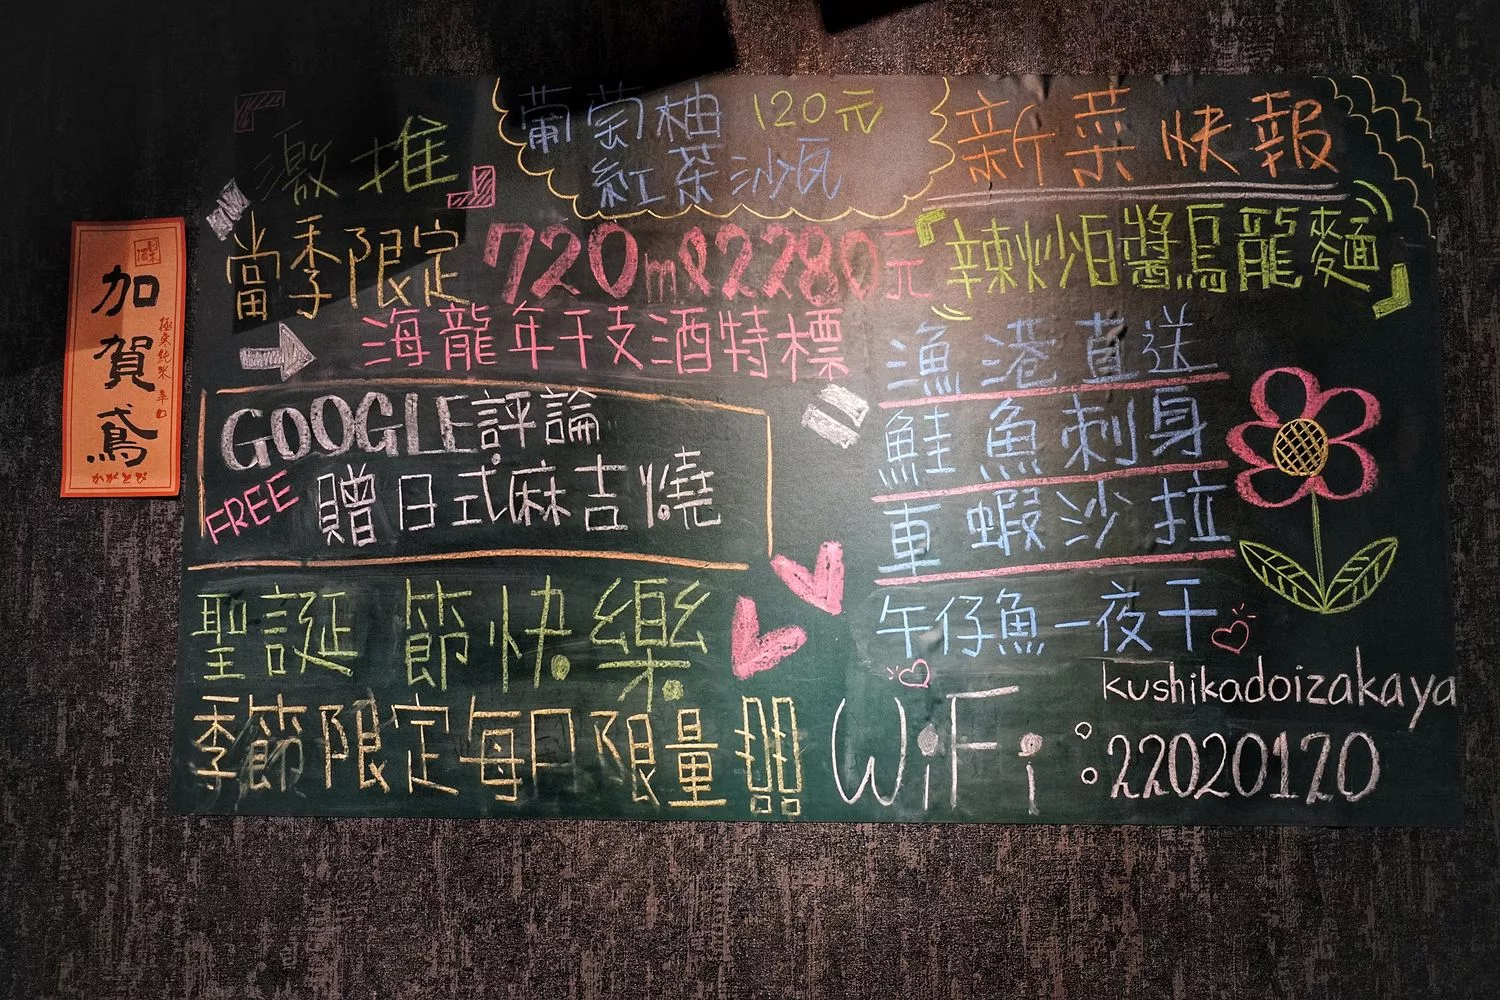 激推
葡萄柚 120元
紅茶沙瓦
當季限定 720ml 2280元
海龍年干支酒特標
GOOGLE評論
FREE 贈日式麻吉燒
聖誕節快樂
季節限定每日限量!!
新菜快報
辣炒柏醬烏龍麵
漁港直送
鮭魚刺身
車蝦沙拉
午仔魚一夜干
kushikadoizakaya
WiFi:22020120
加賀鳶
極寒純米 辛口
かがとび